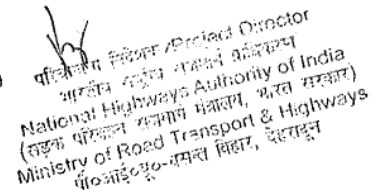 परियोजना निदेशक /Project Director
भारतीय राष्ट्रीय राजमार्ग प्राधिकरण
National Highways Authority of India
(सड़क परिवहन राजमार्ग मंत्रालय, भारत सरकार)
Ministry of Road Transport & Highways
पी०आई०यू०-वसन्त विहार, देहरादून